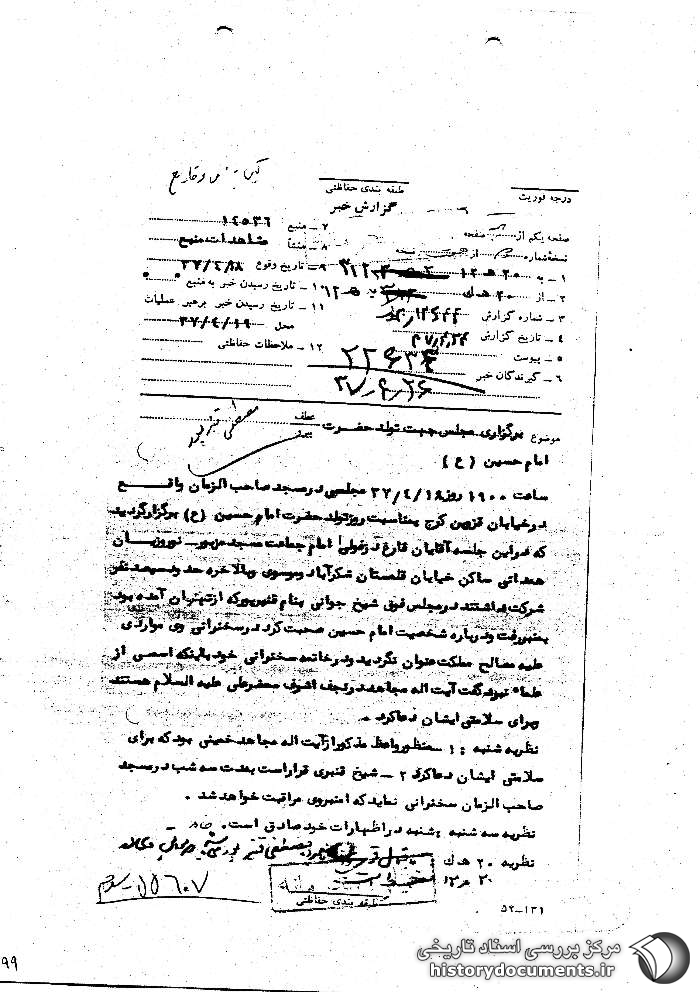 درجه فوریت
طبقه بندی حفاظتی
گزارش خبر
صفحه یکم از صفحه
نسخه شماره از نسخه
۱ - به ۲۰ ه ۱۲
۲ - از ۲۰ ه ک
۳ - شماره گزارش
۴ - تاریخ گزارش
۵ - پیوست
۶ - گیرندگان خبر
۷ - منبع ۱۴۵۳۶
۸ - منشأ مشاهدات منبع
۹ - تاریخ وقوع ۳۷/۴/۱۸
۱۰ - تاریخ رسیدن خبر به منبع
۱۱ - تاریخ رسیدن خبر برهبر عملیات
محل ۳۷/۴/۱۹
۱۲ - ملاحظات حفاظتی
۲۲۶۳۴
موضوع برگزاری مجلس جهت تولد حضرت
امام حسین (ع)
عطف
ساعت ۱۹۰۰ روز ۳۷/۴/۱۸ مجلسی در مسجد صاحب الزمان واقع
در خیابان قزوین کرج بمناسبت روز تولد حضرت امام حسین (ع) برگزار گردید
که در این جلسه آقایان فارغ دزفولی امام جماعت مسجد مزبور - نوروزیان
همدانی ساکن خیابان قلمستان شکرآباد و موسوی و بالاخره حدود سیصد نفر
شرکت داشتند در مجلس فوق شیخ جوانی بنام قنبرپور که از تهران آمده بود
بمنبر رفت و درباره شخصیت امام حسین صحبت کرد در سخنرانی وی مواردی
علیه مصالح مملکت عنوان نگردید و در خاتمه سخنرانی خود با اینکه اسمی از
علماء نبرد گفت آیت اله مجاهد در نجف اشرف محضر علی علیه السلام هستند
و برای سلامتی ایشان دعا کرد .
نظریه شنبه : ۱ - منظور واعظ مذکور از آیت اله مجاهد خمینی بود که برای
سلامتی ایشان دعا کرد ۲ - شیخ قنبری قرار است بمدت سه شب در مسجد
صاحب الزمان سخنرانی نماید که از نامبرده مراقبت خواهد شد .
نظریه سه شنبه . شنبه در اظهارات خود صادق است .
نظریه ۲۰ ه ک
۲۰ ه ۱۲
طبقه بندی حفاظتی
۵۲-۱۳۱
۹۹
مرکز بررسی اسناد تاریخی
historydocuments.ir